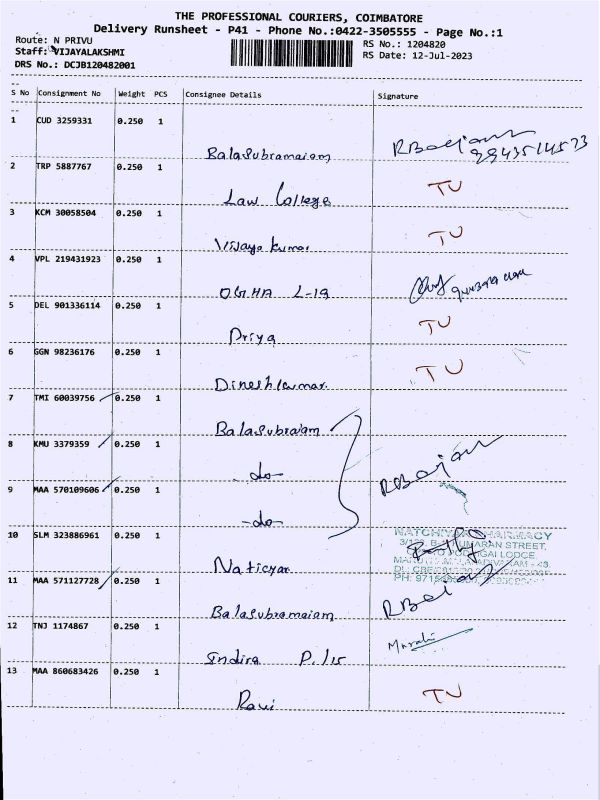 THE PROFESSIONAL COURIERS, COIMBATORE
Delivery Runsheet - P41 - Phone No.:0422-3505555 - Page No.:1
Route: N PRIVU
RS No.: 1204820
Staff: VIJAYALAKSHMI
RS Date: 12-Jul-2023
DRS No.: DCJB120482001
S No Consignment No Weight PCS Consignee Details Signature
1 CUD 3259331 0.250 1
Balasubramaiam
2 TRP 5887767 0.250 1 TU
Law College
3 KCM 30058504 0.250 1 TU
Vijaya kumar
4 VPL 219431923 0.250 1
L-19
5 DEL 901336114 0.250 1 TU
Priya
6 GGN 98236176 0.250 1 TU
Dineshkumar
7 TMI 60039756 0.250 1
Balasubraiam
8 KMU 3379359 0.250 1
-do-
9 MAA 570109606 0.250 1
-do-
10 SLM 323886961 0.250 1 PHARMACY
STREET,
LODGE
11 MAA 571127728 0.250 1
Balasubramaiam
12 TNJ 1174867 0.250 1
Indira P.
13 MAA 860683426 0.250 1 TU
Ravi